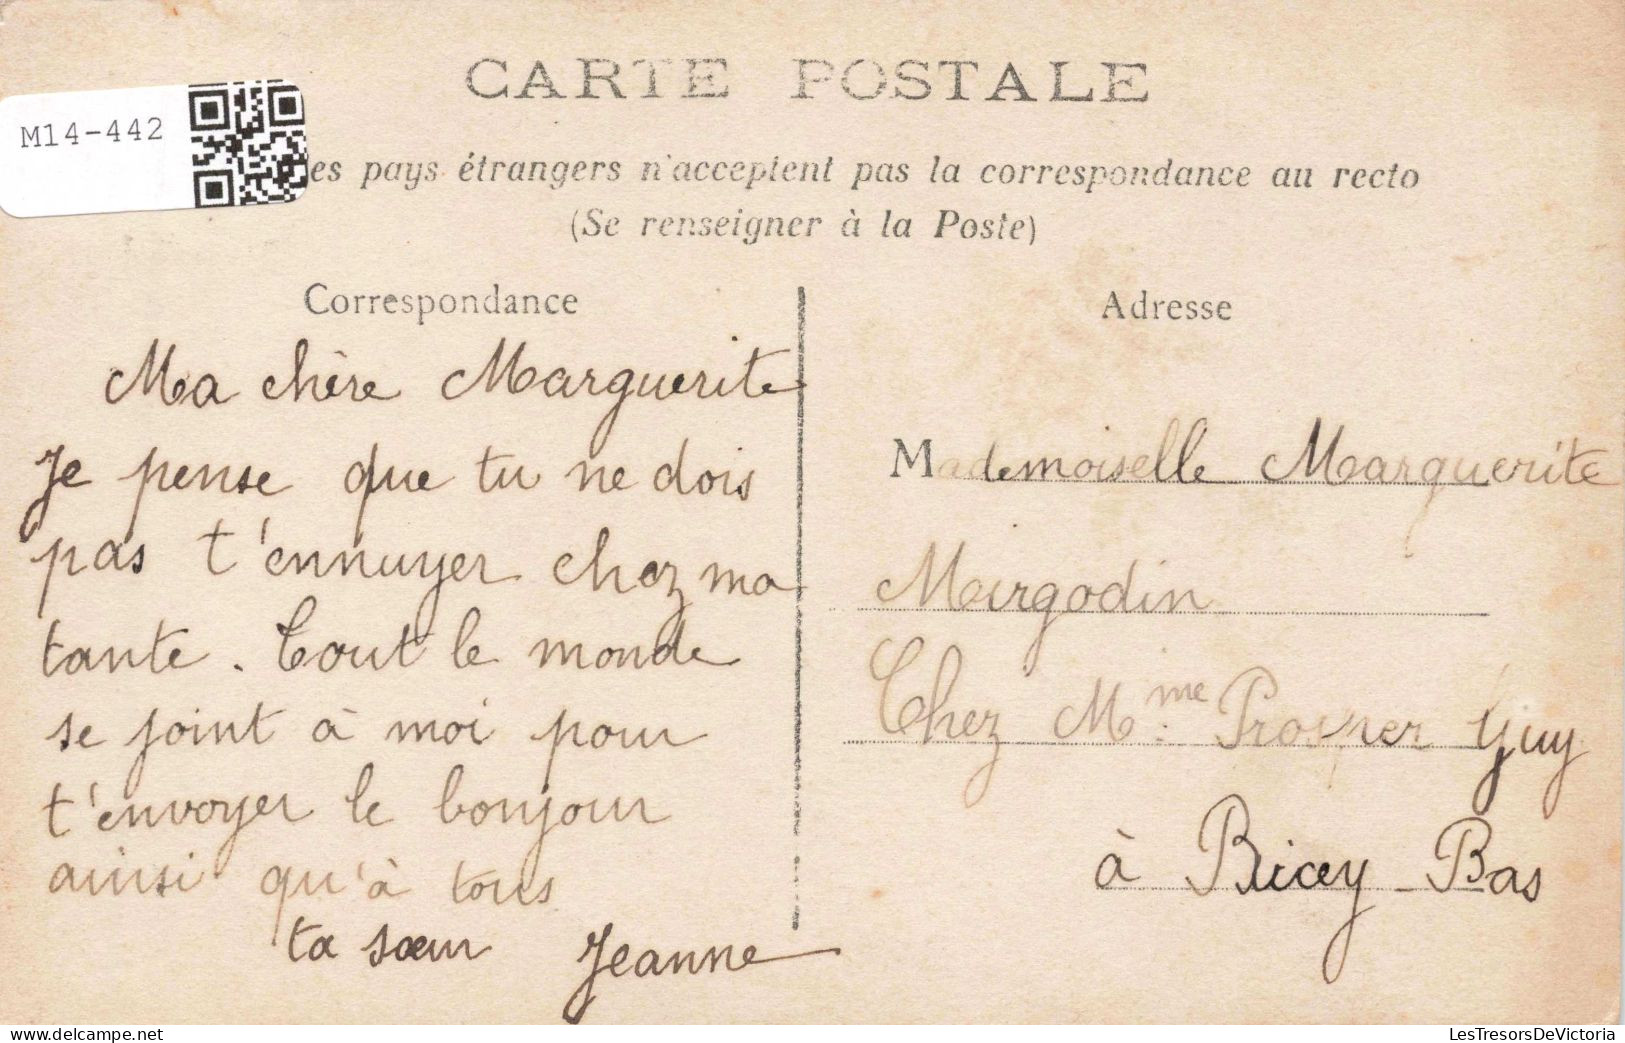 CARTE POSTALE
M14-442
es pays étrangers n'acceptent pas la correspondance au recto
(Se renseigner à la Poste)
Correspondance
Ma chère Marguerite
Je pense que tu ne dois
pas t'ennuyer chez ma
tante. Tout le monde
se joint à moi pour
t'envoyer le bonjour
ainsi qu'à tous
ta sœur Jeanne
Adresse
Mademoiselle Marguerite
Margodin
Chez Mme Prosper Guy
à Bicey-Bas
delcampe.net
LesTresorsDeVictoria